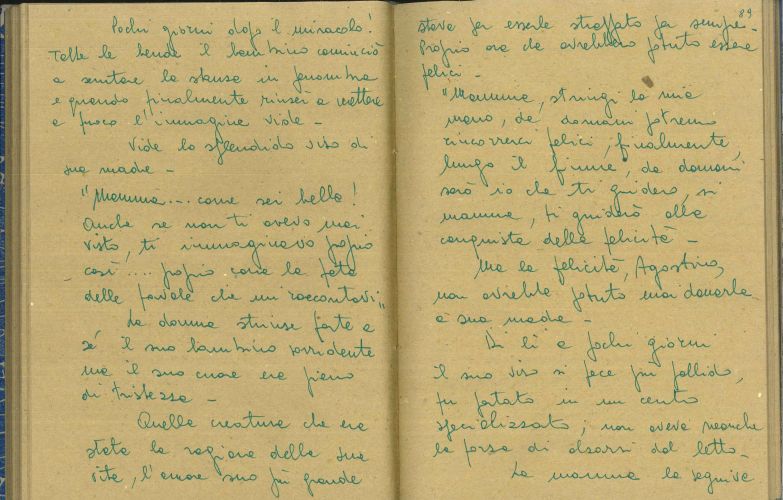 Pochi giorni dopo il miracolo!
Tolte le bende il bambino cominciò
a scrutare la stanza in penombra
e quando finalmente riuscì a mettere
a fuoco l'immagine vide -
Vide lo splendido viso di
sua madre -
"Mamma... come sei bella!
Anche se non ti avevo mai
visto, ti immaginavo proprio
così.... proprio come la fata
delle favole che mi raccontavi"
La donna strinse forte a
sé il suo bambino sorridente
ma il suo cuore era pieno
di tristezza -
Quella creatura che era
stata la ragione della sua
vita, l'amore suo più grande
89
stava per esserle strappato per sempre -
Proprio ora che avrebbero potuto essere
felici -
"Mamma, stringi la mia
mano, da domani potremo
rincorrerci felici, finalmente,
lungo il fiume, da domani
sarò io che ti guiderò, sì
mamma, ti guiderò alla
conquista della felicità -
Ma la felicità, Agostino,
non avrebbe potuto mai donarla
a sua madre -
Di lì a pochi giorni
il suo viso si fece più pallido,
fu portato in un centro
specializzato, non aveva neanche
la forza di alzarsi dal letto -
La mamma lo seguiva